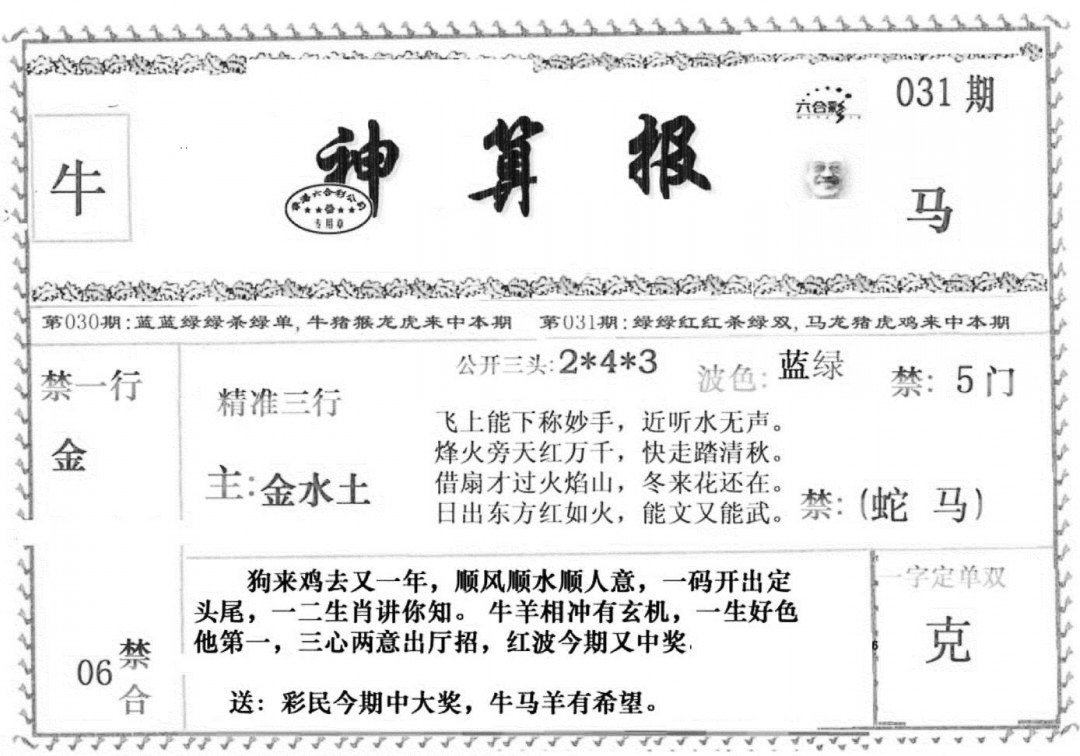 牛
神算报
香港六合彩公司
专用章
六合彩
031期
马
第030期:蓝蓝绿绿杀绿单,牛猪猴龙虎来中本期 第031期:绿绿红红杀绿双,马龙猪虎鸡来中本期
禁一行
金
精准三行
主:金水土
公开三头:2*4*3
波色:蓝绿
禁:5门
飞上能下称妙手，近听水无声。
烽火旁天红万千，快走踏清秋。
借扇才过火焰山，冬来花还在。
日出东方红如火，能文又能武。
禁:(蛇 马)
06
禁合
狗来鸡去又一年，顺风顺水顺人意，一码开出定
头尾，一二生肖讲你知。牛羊相冲有玄机，一生好色
他第一，三心两意出厅招，红波今期又中奖.
送：彩民今期中大奖，牛马羊有希望。
6
一字定单双
克